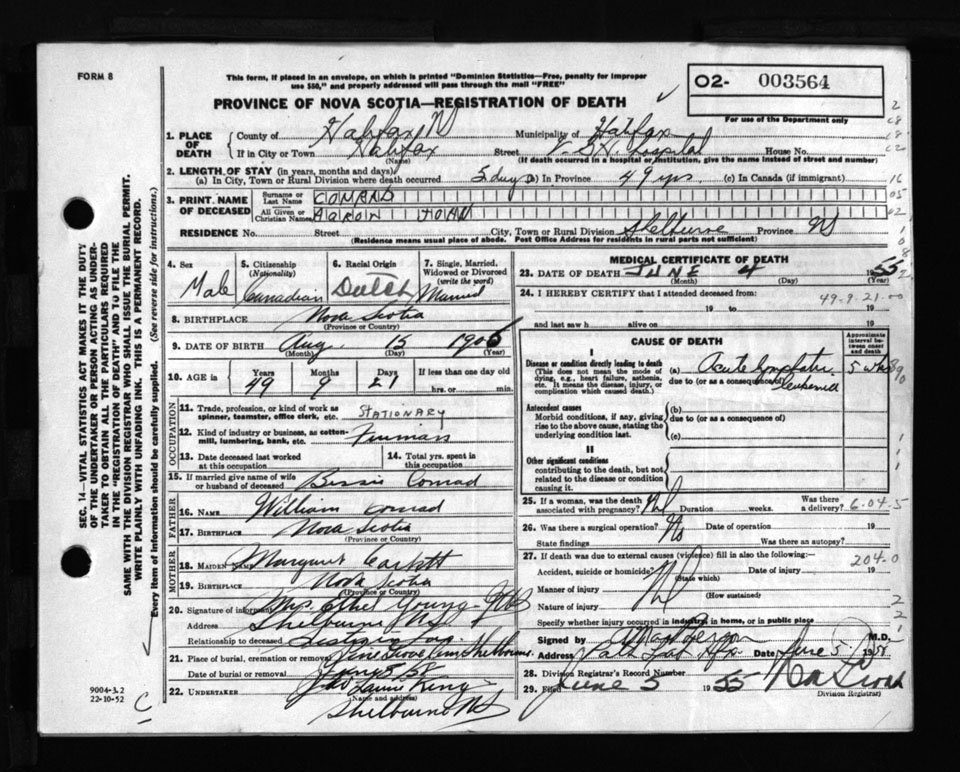 FORM 8
This form, if placed in an envelope, on which is printed "Dominion Statistics—Free, penalty for improper
use $50," and properly addressed will pass through the mail "FREE"
O2- 003564
For use of the Department only
PROVINCE OF NOVA SCOTIA—REGISTRATION OF DEATH
1. PLACE OF DEATH County of Halifax NS Municipality of Halifax
If in City or Town Halifax (Name) Street V.G.H. Hospital House No.
(If death occurred in a hospital or institution, give the name instead of street and number)
2. LENGTH OF STAY (in years, months and days)
(a) In City, Town or Rural Division where death occurred 5 days (b) In Province 49 yrs (c) In Canada (if immigrant)
3. PRINT NAME OF DECEASED Surname or Last Name CONRAD
All Given or Christian Names AARON
RESIDENCE No. Street City, Town or Rural Division Shelburne Province NS
(Residence means usual place of abode. Post Office Address for residents in rural parts not sufficient)
4. Sex Male
5. Citizenship (Nationality) Canadian
6. Racial Origin Dutch
7. Single, Married, Widowed or Divorced (write the word) Married
8. BIRTHPLACE Nova Scotia
(Province or Country)
9. DATE OF BIRTH Aug. 15
(Month) (Day) (Year)
10. AGE in Years 49 Months 9 Days 21 If less than one day
hrs. or min.
OCCUPATION
11. Trade, profession, or kind of work as spinner, teamster, office clerk, etc. STATIONARY
12. Kind of industry or business, as cotton-mill, lumbering, bank, etc.
13. Date deceased last worked at this occupation
14. Total yrs. spent in this occupation
15. If married give name of wife or husband of deceased Bessie Conrad
FATHER
16. NAME William Conrad
17. BIRTHPLACE Nova Scotia
(Province or Country)
MOTHER
18. MAIDEN NAME Margaret
19. BIRTHPLACE Nova Scotia
(Province or Country)
20. Signature of informant Mrs. Ethel Young
Address Shelburne NS
Relationship to deceased
21. Place of burial, cremation or removal Pine Grove Cem Shelburne
Date of burial or removal
22. UNDERTAKER
(Name and address)
Shelburne NS
MEDICAL CERTIFICATE OF DEATH
23. DATE OF DEATH JUNE 4 1955
(Month) (Day) (Year)
24. I HEREBY CERTIFY that I attended deceased from
49.9.21.00
19 to 19
and last saw h alive on 19
CAUSE OF DEATH
Approximate interval between onset and death
I
Disease or condition directly leading to death
(This does not mean the mode of dying, e.g., heart failure, asthenia, etc. It means the disease, injury, or complication which caused death.)
(a) Acute Lymphatic Leukemia 5 wks
due to (or as a consequence of)
Antecedent causes
Morbid conditions, if any, giving rise to the above cause, stating the underlying condition last.
(b)
due to (or as a consequence of)
(c)
II
Other significant conditions
contributing to the death, but not related to the disease or condition causing it.
25. If a woman, was the death associated with pregnancy? Duration weeks. Was there a delivery? 6.04.5
26. Was there a surgical operation? No Date of operation 19
State findings Was there an autopsy?
27. If death was due to external causes (violence) fill in also the following:
204.0
Accident, suicide or homicide? (State which) Date of injury 19
Manner of injury (How sustained)
Nature of injury
Specify whether injury occurred in industry, in home, or in public place
Signed by M.D.
Address Path Lab Hfx. Date June 5
28. Division Registrar's Record Number
29. Filed June 5 1955
Division Registrar
SEC. 14—VITAL STATISTICS ACT MAKES IT THE DUTY
OF THE UNDERTAKER OR PERSON ACTING AS UNDERTAKER
TO OBTAIN ALL THE PARTICULARS REQUIRED
IN THE "REGISTRATION OF DEATH" AND TO FILE THE
SAME WITH THE DIVISION REGISTRAR WHO SHALL ISSUE THE BURIAL PERMIT.
WRITE PLAINLY WITH UNFADING INK. THIS IS A PERMANENT RECORD.
Every item of information should be carefully supplied. (See reverse side for instructions.)
9004-3.2
22-10-52
C